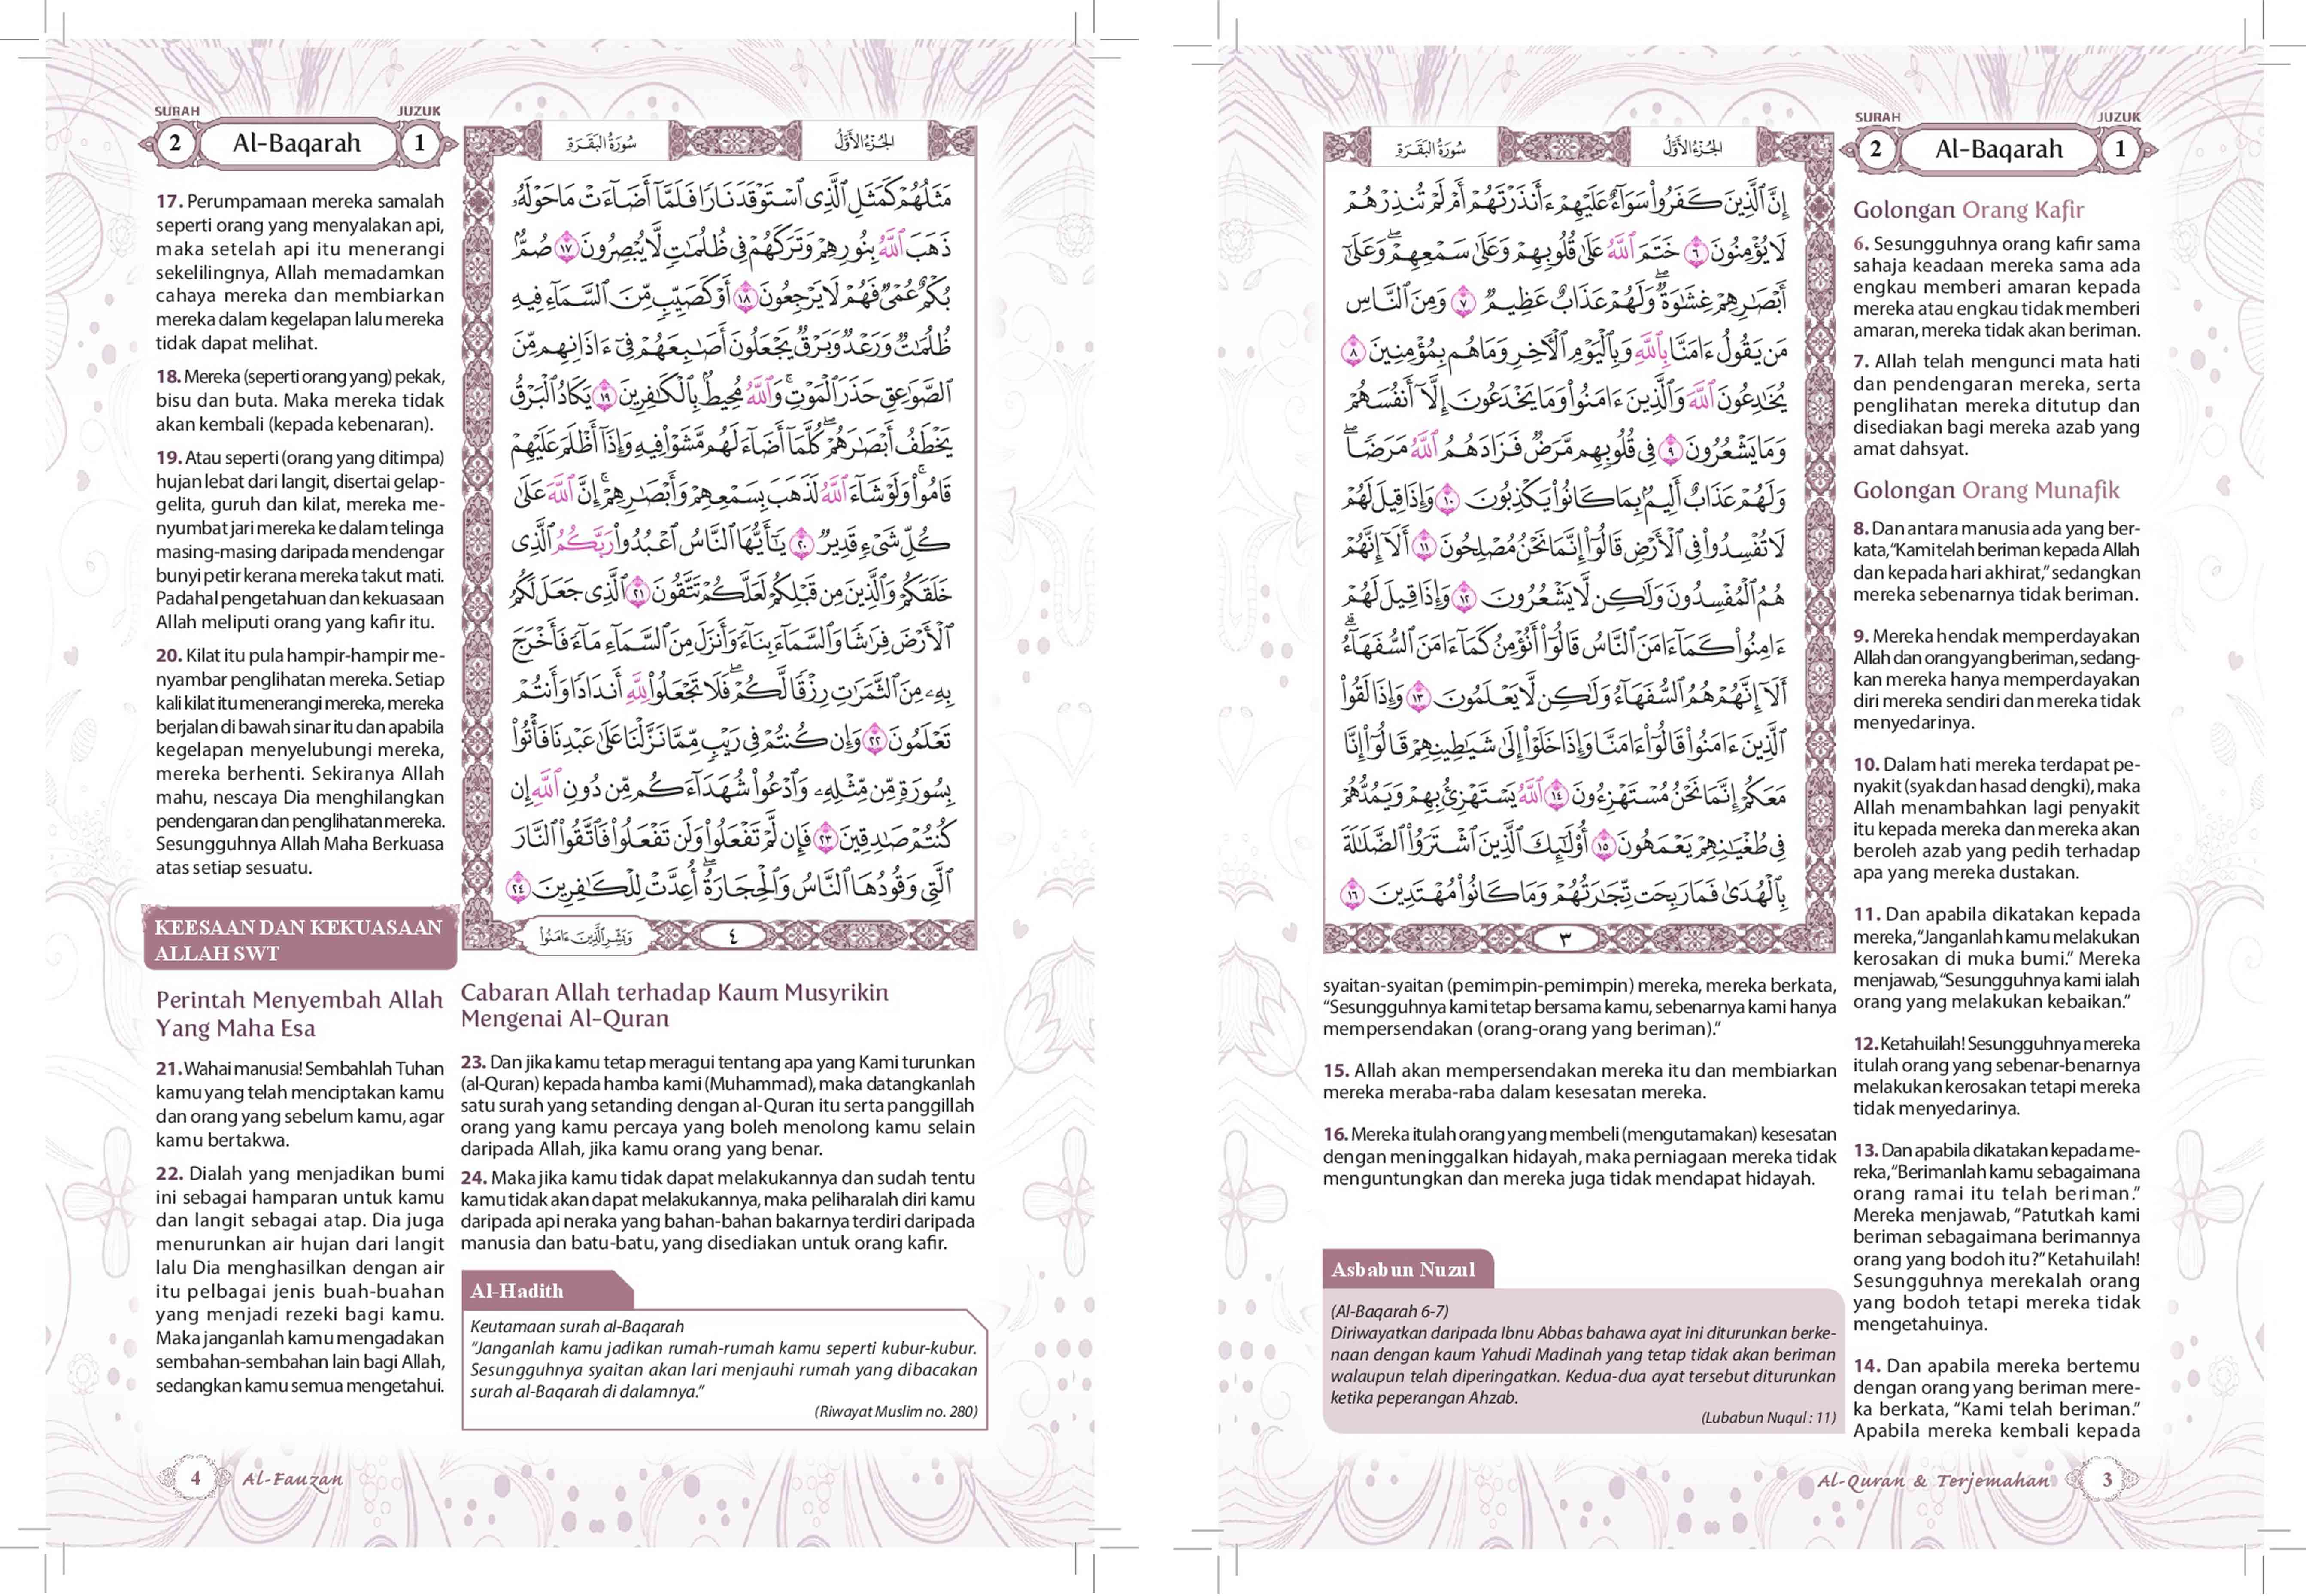 SURAH JUZUK
2 Al-Baqarah 1
الجُزْءُ الأَوَّلُ
سُورَةُ البَقَرَةِ
إِنَّ ٱلَّذِينَ كَفَرُوا۟ سَوَآءٌ عَلَيْهِمْ ءَأَنذَرْتَهُمْ أَمْ لَمْ تُنذِرْهُمْ
لَا يُؤْمِنُونَ ٦ خَتَمَ ٱللَّهُ عَلَىٰ قُلُوبِهِمْ وَعَلَىٰ سَمْعِهِمْ ۖ وَعَلَىٰٓ
أَبْصَـٰرِهِمْ غِشَـٰوَةٌ ۖ وَلَهُمْ عَذَابٌ عَظِيمٌ ٧ وَمِنَ ٱلنَّاسِ
مَن يَقُولُ ءَامَنَّا بِٱللَّهِ وَبِٱلْيَوْمِ ٱلْـَٔاخِرِ وَمَا هُم بِمُؤْمِنِينَ ٨
يُخَـٰدِعُونَ ٱللَّهَ وَٱلَّذِينَ ءَامَنُوا۟ وَمَا يَخْدَعُونَ إِلَّآ أَنفُسَهُمْ
وَمَا يَشْعُرُونَ ٩ فِى قُلُوبِهِم مَّرَضٌ فَزَادَهُمُ ٱللَّهُ مَرَضًا ۖ
وَلَهُمْ عَذَابٌ أَلِيمٌۢ بِمَا كَانُوا۟ يَكْذِبُونَ ١٠ وَإِذَا قِيلَ لَهُمْ
لَا تُفْسِدُوا۟ فِى ٱلْأَرْضِ قَالُوٓا۟ إِنَّمَا نَحْنُ مُصْلِحُونَ ١١ أَلَآ إِنَّهُمْ
هُمُ ٱلْمُفْسِدُونَ وَلَـٰكِن لَّا يَشْعُرُونَ ١٢ وَإِذَا قِيلَ لَهُمْ
ءَامِنُوا۟ كَمَآ ءَامَنَ ٱلنَّاسُ قَالُوٓا۟ أَنُؤْمِنُ كَمَآ ءَامَنَ ٱلسُّفَهَآءُ ۗ
أَلَآ إِنَّهُمْ هُمُ ٱلسُّفَهَآءُ وَلَـٰكِن لَّا يَعْلَمُونَ ١٣ وَإِذَا لَقُوا۟
ٱلَّذِينَ ءَامَنُوا۟ قَالُوٓا۟ ءَامَنَّا وَإِذَا خَلَوْا۟ إِلَىٰ شَيَـٰطِينِهِمْ قَالُوٓا۟ إِنَّا
مَعَكُمْ إِنَّمَا نَحْنُ مُسْتَهْزِءُونَ ١٤ ٱللَّهُ يَسْتَهْزِئُ بِهِمْ وَيَمُدُّهُمْ
فِى طُغْيَـٰنِهِمْ يَعْمَهُونَ ١٥ أُو۟لَـٰٓئِكَ ٱلَّذِينَ ٱشْتَرَوُا۟ ٱلضَّلَـٰلَةَ
بِٱلْهُدَىٰ فَمَا رَبِحَت تِّجَـٰرَتُهُمْ وَمَا كَانُوا۟ مُهْتَدِينَ ١٦
٣
Golongan Orang Kafir
6. Sesungguhnya orang kafir sama
sahaja keadaan mereka sama ada
engkau memberi amaran kepada
mereka atau engkau tidak memberi
amaran, mereka tidak akan beriman.
7. Allah telah mengunci mata hati
dan pendengaran mereka, serta
penglihatan mereka ditutup dan
disediakan bagi mereka azab yang
amat dahsyat.
Golongan Orang Munafik
8. Dan antara manusia ada yang ber-
kata, “Kami telah beriman kepada Allah
dan kepada hari akhirat,” sedangkan
mereka sebenarnya tidak beriman.
9. Mereka hendak memperdayakan
Allah dan orang yang beriman, sedang-
kan mereka hanya memperdayakan
diri mereka sendiri dan mereka tidak
menyedarinya.
10. Dalam hati mereka terdapat pe-
nyakit (syak dan hasad dengki), maka
Allah menambahkan lagi penyakit
itu kepada mereka dan mereka akan
beroleh azab yang pedih terhadap
apa yang mereka dustakan.
11. Dan apabila dikatakan kepada
mereka, “Janganlah kamu melakukan
kerosakan di muka bumi.” Mereka
menjawab, “Sesungguhnya kami ialah
orang yang melakukan kebaikan.”
12. Ketahuilah! Sesungguhnya mereka
itulah orang yang sebenar-benarnya
melakukan kerosakan tetapi mereka
tidak menyedarinya.
13. Dan apabila dikatakan kepada me-
reka, “Berimanlah kamu sebagaimana
orang ramai itu telah beriman.”
Mereka menjawab, “Patutkah kami
beriman sebagaimana berimannya
orang yang bodoh itu?” Ketahuilah!
Sesungguhnya merekalah orang
yang bodoh tetapi mereka tidak
mengetahuinya.
14. Dan apabila mereka bertemu
dengan orang yang beriman mere-
ka berkata, “Kami telah beriman.”
Apabila mereka kembali kepada
syaitan-syaitan (pemimpin-pemimpin) mereka, mereka berkata,
“Sesungguhnya kami tetap bersama kamu, sebenarnya kami hanya
mempersendakan (orang-orang yang beriman).”
15. Allah akan mempersendakan mereka itu dan membiarkan
mereka meraba-raba dalam kesesatan mereka.
16. Mereka itulah orang yang membeli (mengutamakan) kesesatan
dengan meninggalkan hidayah, maka perniagaan mereka tidak
menguntungkan dan mereka juga tidak mendapat hidayah.
Asbabun Nuzul
(Al-Baqarah 6-7)
Diriwayatkan daripada Ibnu Abbas bahawa ayat ini diturunkan berke-
naan dengan kaum Yahudi Madinah yang tetap tidak akan beriman
walaupun telah diperingatkan. Kedua-dua ayat tersebut diturunkan
ketika peperangan Ahzab.
(Lubabun Nuqul : 11)
Al-Quran & Terjemahan 3
SURAH JUZUK
2 Al-Baqarah 1
الجُزْءُ الأَوَّلُ
سُورَةُ البَقَرَةِ
مَثَلُهُمْ كَمَثَلِ ٱلَّذِى ٱسْتَوْقَدَ نَارًا فَلَمَّآ أَضَآءَتْ مَا حَوْلَهُۥ
ذَهَبَ ٱللَّهُ بِنُورِهِمْ وَتَرَكَهُمْ فِى ظُلُمَـٰتٍ لَّا يُبْصِرُونَ ١٧ صُمٌّۢ
بُكْمٌ عُمْىٌ فَهُمْ لَا يَرْجِعُونَ ١٨ أَوْ كَصَيِّبٍ مِّنَ ٱلسَّمَآءِ فِيهِ
ظُلُمَـٰتٌ وَرَعْدٌ وَبَرْقٌ يَجْعَلُونَ أَصَـٰبِعَهُمْ فِىٓ ءَاذَانِهِم مِّنَ
ٱلصَّوَٰعِقِ حَذَرَ ٱلْمَوْتِ ۚ وَٱللَّهُ مُحِيطٌۢ بِٱلْكَـٰفِرِينَ ١٩ يَكَادُ ٱلْبَرْقُ
يَخْطَفُ أَبْصَـٰرَهُمْ ۖ كُلَّمَآ أَضَآءَ لَهُم مَّشَوْا۟ فِيهِ وَإِذَآ أَظْلَمَ عَلَيْهِمْ
قَامُوا۟ ۚ وَلَوْ شَآءَ ٱللَّهُ لَذَهَبَ بِسَمْعِهِمْ وَأَبْصَـٰرِهِمْ ۚ إِنَّ ٱللَّهَ عَلَىٰ
كُلِّ شَىْءٍ قَدِيرٌ ٢٠ يَـٰٓأَيُّهَا ٱلنَّاسُ ٱعْبُدُوا۟ رَبَّكُمُ ٱلَّذِى
خَلَقَكُمْ وَٱلَّذِينَ مِن قَبْلِكُمْ لَعَلَّكُمْ تَتَّقُونَ ٢١ ٱلَّذِى جَعَلَ لَكُمُ
ٱلْأَرْضَ فِرَٰشًا وَٱلسَّمَآءَ بِنَآءً وَأَنزَلَ مِنَ ٱلسَّمَآءِ مَآءً فَأَخْرَجَ
بِهِۦ مِنَ ٱلثَّمَرَٰتِ رِزْقًا لَّكُمْ ۖ فَلَا تَجْعَلُوا۟ لِلَّهِ أَندَادًا وَأَنتُمْ
تَعْلَمُونَ ٢٢ وَإِن كُنتُمْ فِى رَيْبٍ مِّمَّا نَزَّلْنَا عَلَىٰ عَبْدِنَا فَأْتُوا۟
بِسُورَةٍ مِّن مِّثْلِهِۦ وَٱدْعُوا۟ شُهَدَآءَكُم مِّن دُونِ ٱللَّهِ إِن
كُنتُمْ صَـٰدِقِينَ ٢٣ فَإِن لَّمْ تَفْعَلُوا۟ وَلَن تَفْعَلُوا۟ فَٱتَّقُوا۟ ٱلنَّارَ
ٱلَّتِى وَقُودُهَا ٱلنَّاسُ وَٱلْحِجَارَةُ ۖ أُعِدَّتْ لِلْكَـٰفِرِينَ ٢٤
٤
وَبَشِّرِ ٱلَّذِينَ ءَامَنُوا۟
17. Perumpamaan mereka samalah
seperti orang yang menyalakan api,
maka setelah api itu menerangi
sekelilingnya, Allah memadamkan
cahaya mereka dan membiarkan
mereka dalam kegelapan lalu mereka
tidak dapat melihat.
18. Mereka (seperti orang yang) pekak,
bisu dan buta. Maka mereka tidak
akan kembali (kepada kebenaran).
19. Atau seperti (orang yang ditimpa)
hujan lebat dari langit, disertai gelap-
gelita, guruh dan kilat, mereka me-
nyumbat jari mereka ke dalam telinga
masing-masing daripada mendengar
bunyi petir kerana mereka takut mati.
Padahal pengetahuan dan kekuasaan
Allah meliputi orang yang kafir itu.
20. Kilat itu pula hampir-hampir me-
nyambar penglihatan mereka. Setiap
kali kilat itu menerangi mereka, mereka
berjalan di bawah sinar itu dan apabila
kegelapan menyelubungi mereka,
mereka berhenti. Sekiranya Allah
mahu, nescaya Dia menghilangkan
pendengaran dan penglihatan mereka.
Sesungguhnya Allah Maha Berkuasa
atas setiap sesuatu.
KEESAAN DAN KEKUASAAN
ALLAH SWT
Perintah Menyembah Allah
Yang Maha Esa
21. Wahai manusia! Sembahlah Tuhan
kamu yang telah menciptakan kamu
dan orang yang sebelum kamu, agar
kamu bertakwa.
22. Dialah yang menjadikan bumi
ini sebagai hamparan untuk kamu
dan langit sebagai atap. Dia juga
menurunkan air hujan dari langit
lalu Dia menghasilkan dengan air
itu pelbagai jenis buah-buahan
yang menjadi rezeki bagi kamu.
Maka janganlah kamu mengadakan
sembahan-sembahan lain bagi Allah,
sedangkan kamu semua mengetahui.
Cabaran Allah terhadap Kaum Musyrikin
Mengenai Al-Quran
23. Dan jika kamu tetap meragui tentang apa yang Kami turunkan
(al-Quran) kepada hamba kami (Muhammad), maka datangkanlah
satu surah yang setanding dengan al-Quran itu serta panggillah
orang yang kamu percaya yang boleh menolong kamu selain
daripada Allah, jika kamu orang yang benar.
24. Maka jika kamu tidak dapat melakukannya dan sudah tentu
kamu tidak akan dapat melakukannya, maka peliharalah diri kamu
daripada api neraka yang bahan-bahan bakarnya terdiri daripada
manusia dan batu-batu, yang disediakan untuk orang kafir.
Al-Hadith
Keutamaan surah al-Baqarah
“Janganlah kamu jadikan rumah-rumah kamu seperti kubur-kubur.
Sesungguhnya syaitan akan lari menjauhi rumah yang dibacakan
surah al-Baqarah di dalamnya.”
(Riwayat Muslim no. 280)
4 Al-Fauzan